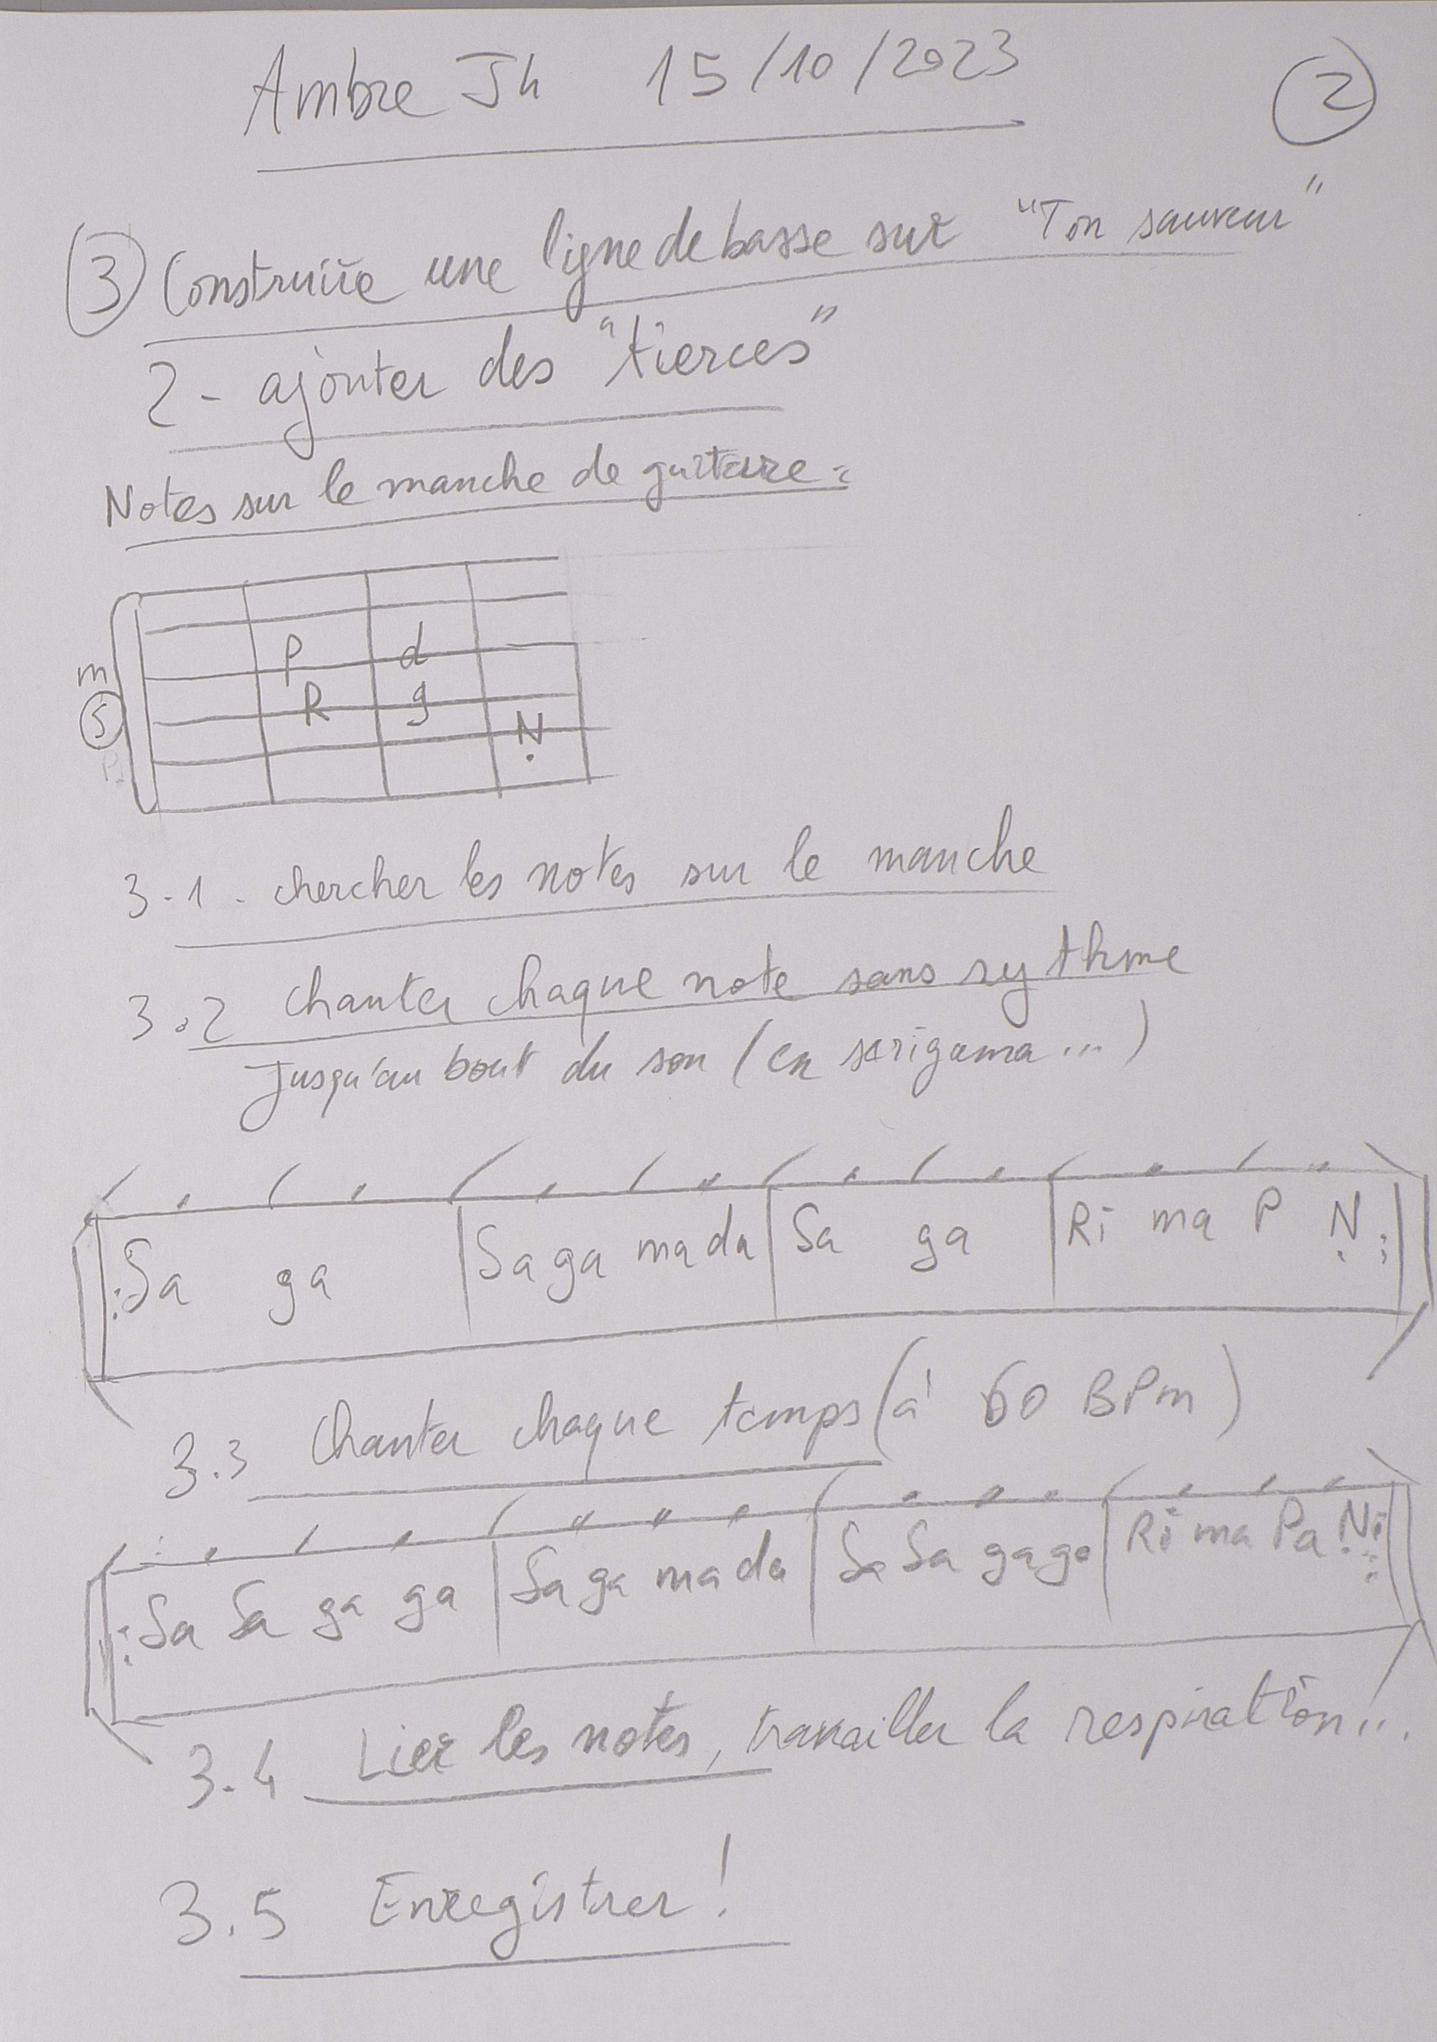 Ambre Jh 15/10/2023
2
3 Construire une ligne de basse sur "Ton sauveur"
2 - ajouter des "tierces"
Notes sur le manche de guitare :
P d
m
R g
S
N
P
3.1 - chercher les notes sur le manche
3.2 chanter chaque note sans rythme
Jusqu'au bout du son (en sarigama ...)
Sa ga | Sa ga ma da | Sa ga | Ri ma P N
3.3 Chanter chaque temps (à 60 BPm)
Sa Sa ga ga | Sa ga ma da | Sa Sa ga ga | Ri ma Pa Ni
3.4 Lier les notes, travailler la respiration!..
3.5 Enregistrer !